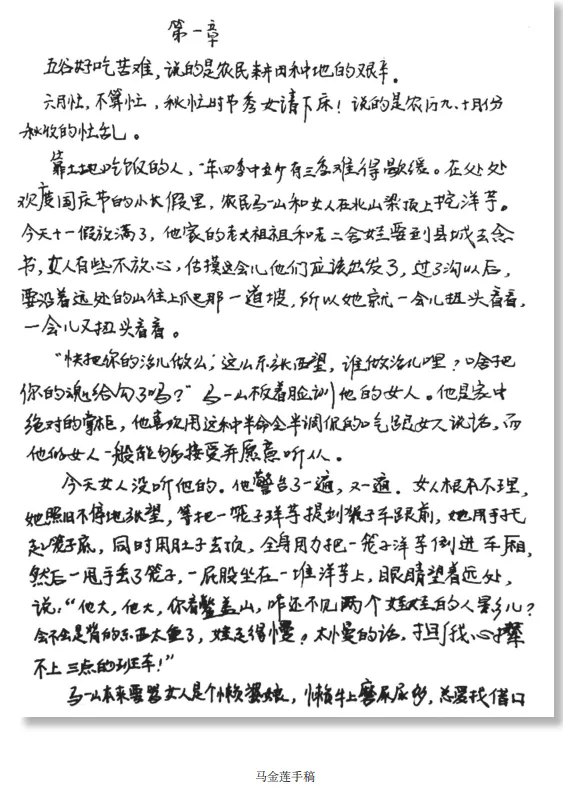 第一章
五谷好吃苦难,说的是农民耕田种地的艰辛。
六月忙,不算忙,秋忙时节秀女请下床!说的是农历九、十月份
秋收的忙乱。
靠土地吃饭的人,一年四季中五个有三季难得歇缓。在处处
欢度国庆节的小长假里,农民马一山和女人在北山梁顶上挖洋芋。
今天十一假放满了,他家的老大祖祖和老二舍娃要到县城去念
书,女人有些不放心,估摸这会儿他们应该出发了,过了沟以后,
要沿着远处的山往上爬那一道坡,所以她就一会儿扭头看看,
一会儿又扭头看看。
“快把你的活儿做么;这么东张西望,谁做活儿哩?啥把
你的魂给勾了吗?”马一山板着脸训他的女人。他是家中
绝对的掌柜,他喜欢用这种半命令半调侃的口气跟女人说话,而
他的女人一般能够接受并愿意听从。
今天女人没听他的。他警告了一遍,又一遍。女人根本不理,
她照旧不停地张望,等把一笼子洋芋提到架子车跟前,她用手托
起笼子底,同时用肚子去顶,全身用力把一笼子洋芋倒进车厢,
然后一甩手丢了笼子,一屁股坐在一堆洋芋上,眼睛望着远处,
说:“他大,他大,你看鳖盖山,咋还不见两个娃娃的人影儿?
会不会是背的东西太重了,娃走得慢?太慢的话,担心撵
不上三点的班车!”
马一山本来要骂女人是个懒婆娘,懒牛上磨屎尿多,总要找借口
马金莲手稿